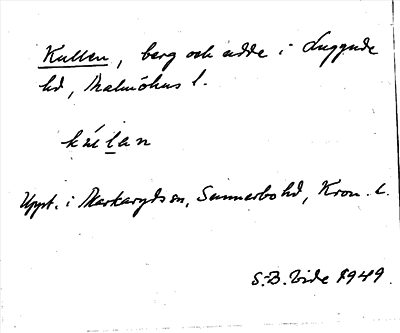 Kullen, berg och udde i Luggude
hd, Malmöhus l.
Uppt. i Markaryds sn, Sunnerbo hd, Kron. l.
S.B. Vide 1949.